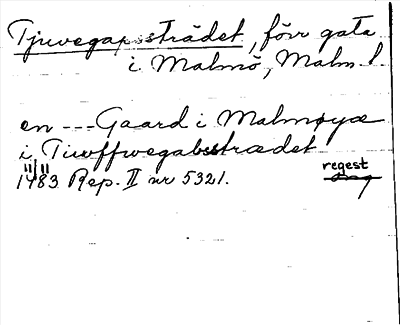 Tjuvegapsstrådet, förr gata
i Malmö, Malm. l.
en --- Gaard i Malmøyæ
i Tiwffwegabsstrædet
11/11
1483 Rep. II nr 5321.
regest